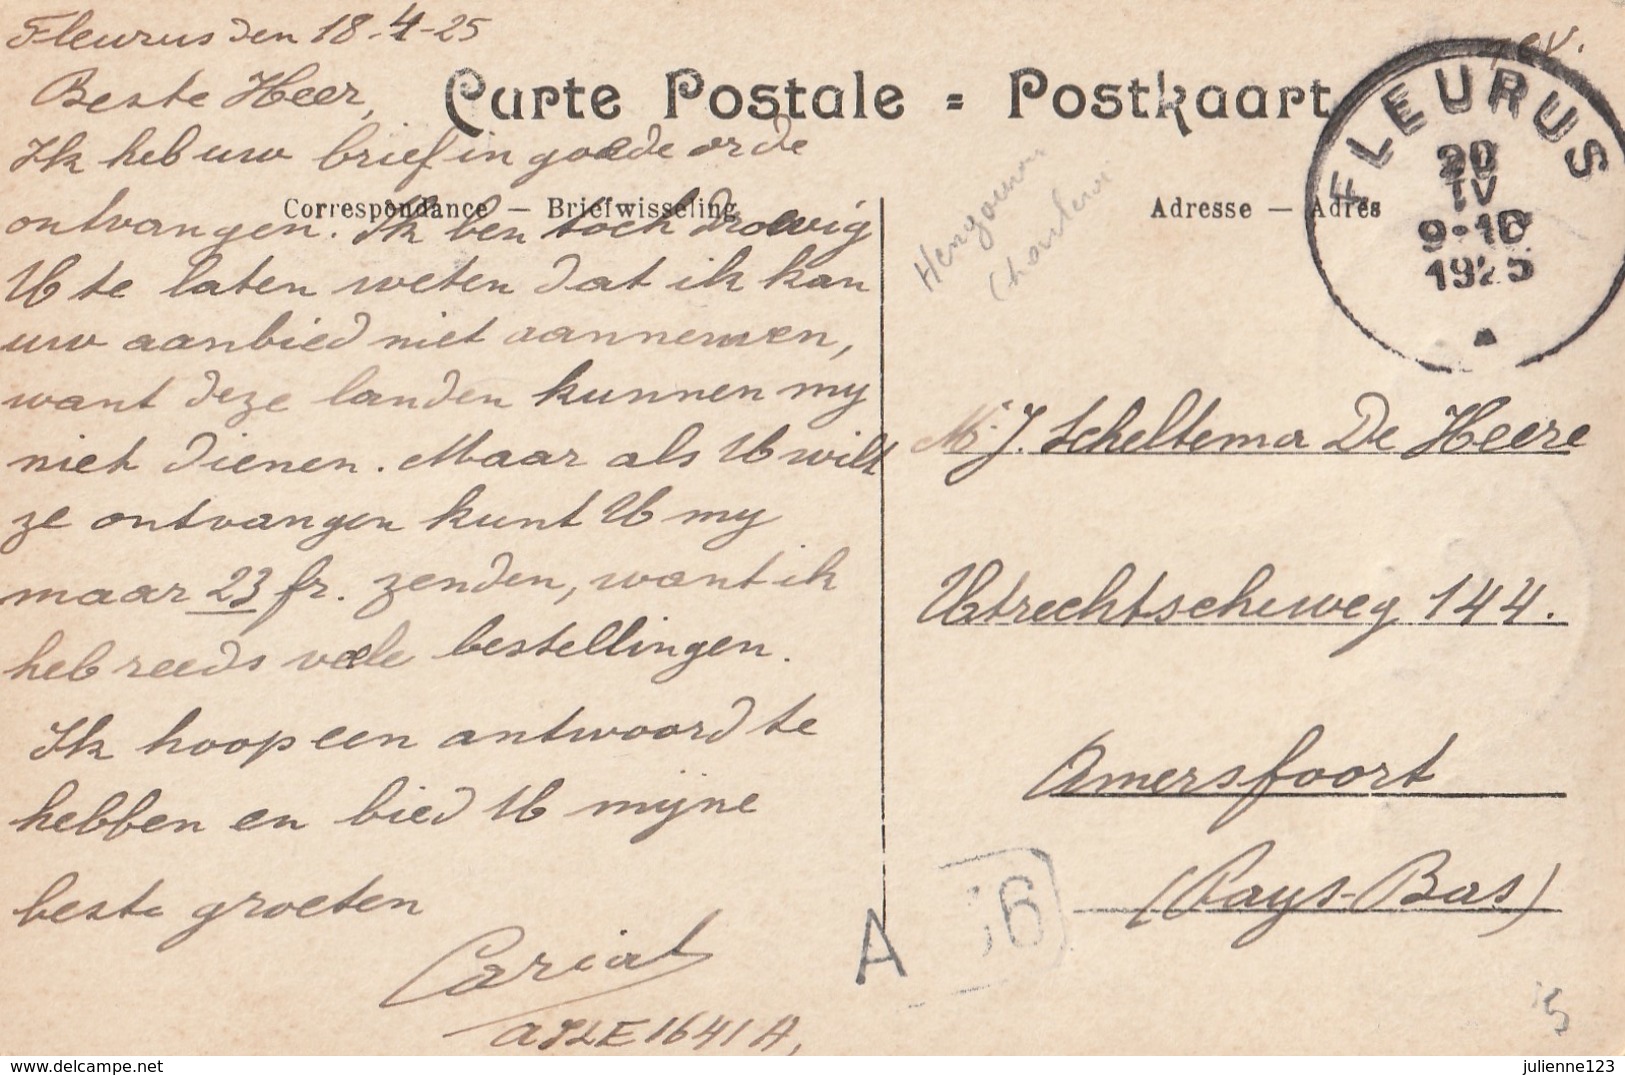 Fleurus den 18-4-25
Beste Heer,
Carte Postale = Postkaart
Ik heb uw brief in goede orde
Correspondance — Briefwisseling
Adresse — Adres
ontvangen. Ik ben toch droevig
U te laten weten dat ik kan
uw aanbied niet aannemen,
want deze landen kunnen my
niet dienen. Maar als U wilt
ze ontvangen kunt U my
maar 23 fr. zenden, want ik
heb reeds veele bestellingen.
Ik hoop een antwoord te
hebben en bied U mijne
beste groeten
Cariat
1641 A,
FLEURUS
20
IV
9-10
1925
Mr J. Scheltema De Heere
Utrechtscheweg 144.
Amersfoort
(Pays-Bas)
A
julienne123